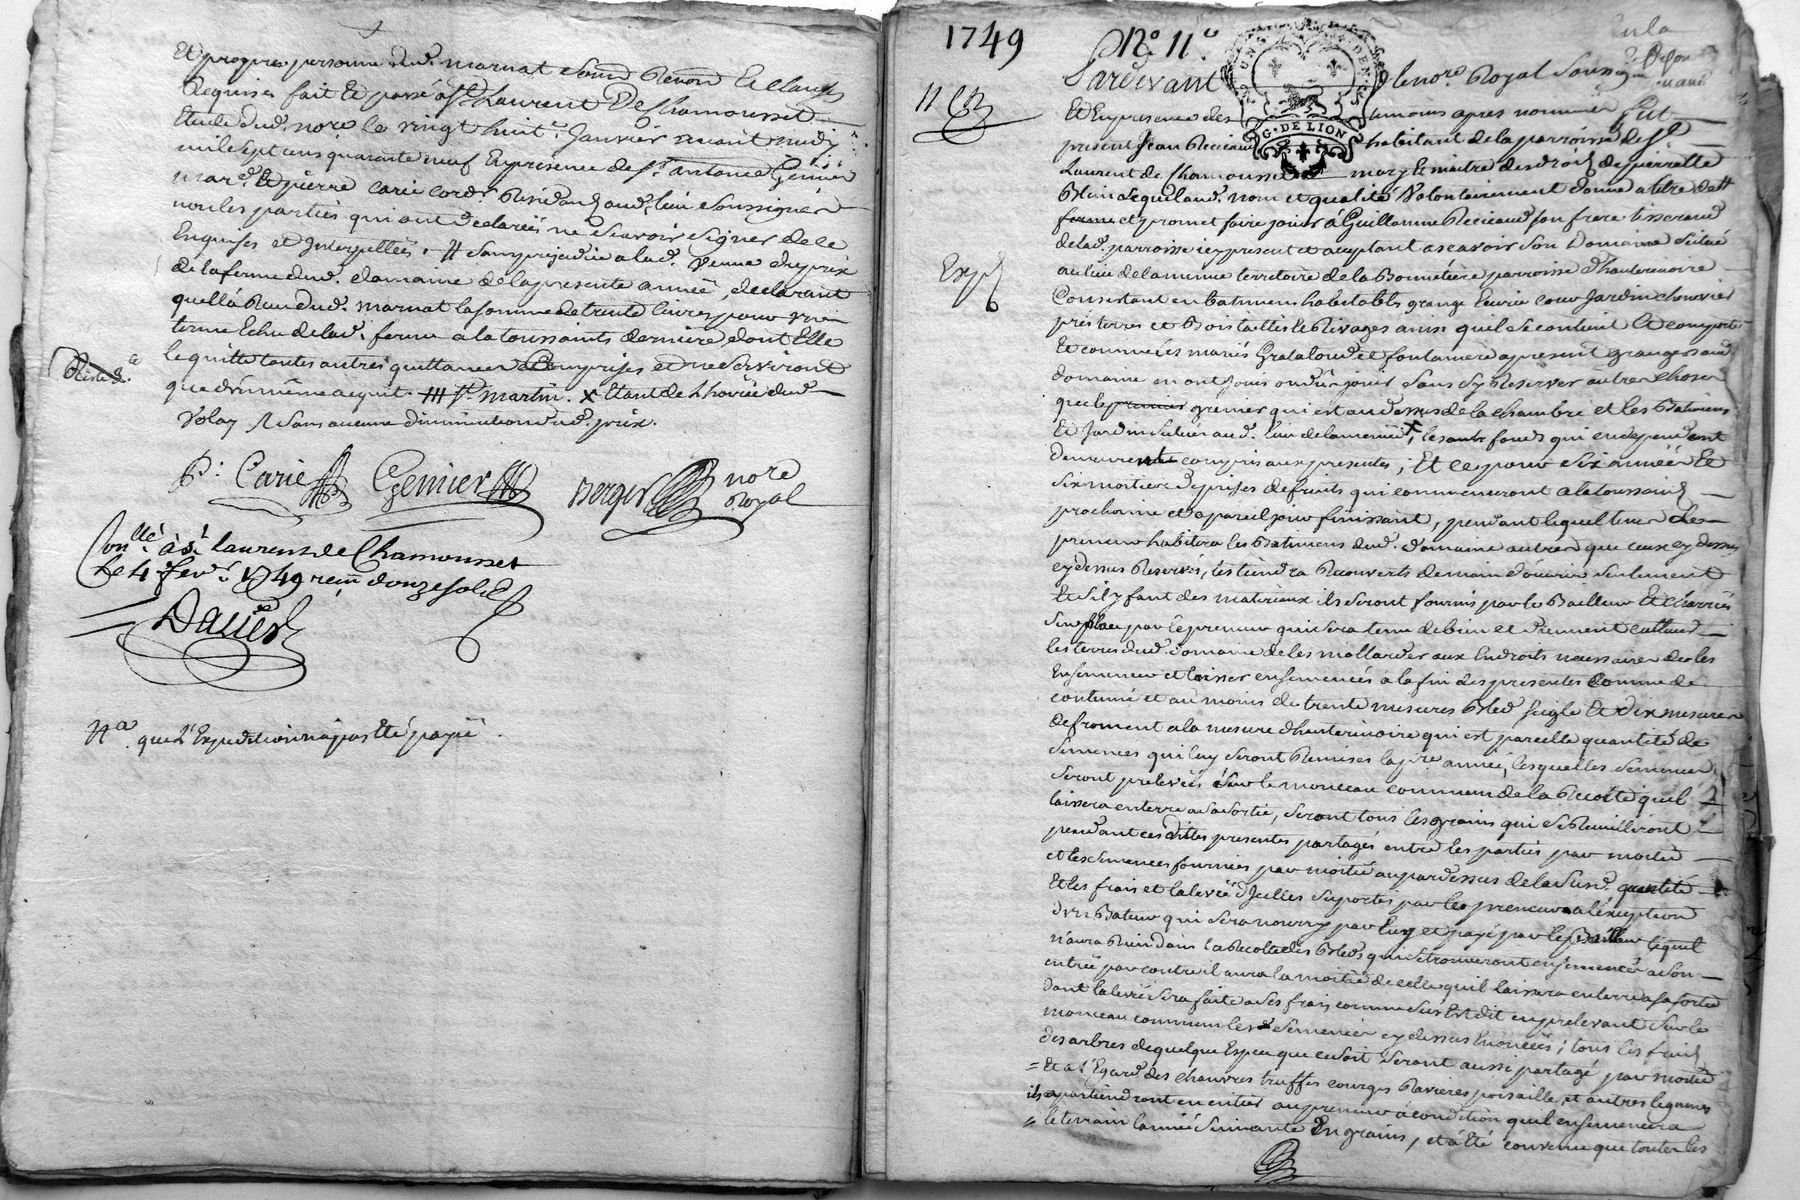 Et propre personne dud. marnat sous Renon Et clauses
Requises fait Et passé à St. Laurent De Chamousset
Etude dud. nore le vingt huit. Janvier avant midy
mil sept cens quarante neuf En présence de sr. antoine Genier
mard. Et pierre carie cord. Résidans aud. lieu soussignés
non les parties qui ont declarées ne scavoir signer de ce
Enquises et Interpellées. # sans prejudice a lad. Venue du prix
de la ferme dud. domaine de la presente année, declarant
quella Rendu dud. marnat la somme de trente livres pour un
terme Echu de lad. ferme a la toussaints derniere dont Elle
le quitte toutes autres quittances Comprises et ne serviront
que d'un même acquit. St. martin. x Etant de L'hoirie dud.
Volay sans aucune diminution dud. prix.
P. Carie Genier Berger nore Royal
Conllé. à St. Laurens de Chamousset
Le 4 fevr. 1749 reçu douze sols
Dauier
Na. que L'Expedition n'a pas Eté payée.
1749 No. 11e
11
G. DE LION
Pardevant le nore. Royal soussigné
Et En presence des temoins apres nommés fut
present Jean habitant de la parroisse de St.
Laurent de Chamousset mary Et maitre des droits de pierrette
Blein de quel aud. nom et qualité Volontairement donne a titre de
ferme et promet faire jouir à Guillaume son frere tisserand
de lad. parroisse icy present et acceptant a scavoir son Domaine situé
au lieu de la même territoire de la Bonnetiere parroisse d'hauterivoire
Consistant en batimens habitables grange Ecurie cour Jardin chenevier
prés terres et Bois taillis le Rivages ainsi qu'il se contient Et comporte
Et comme les mariés Grataloup et fontaniere a present grangers aud.
domaine en ont joui ou dû jouir sans sy Reserver autres choses
que le premier grenier qui est au dessus de la chambre et les Batimens
Et Jardin situés aud. lieu de la x, le autre fonds qui en dependent
demeurante compris aux presentes; Et ce pour six années Et
six moitiere de prises de fruits qui commenceront a la toussaint
prochaine et a pareil jour finissant, pendant lequel tems le
preneur habitera les Batimens dud. domaine autres que ceux cy dessus
cy dessus Reservés, les tiendra Recouverts de main d'ouvrier seulement
Et s'il y faut des materiaux ils seront fournis par le Bailleur Et charriés
sur place par le preneur qui sera tenu de bien et duement cultiver
les terres dud. domaine de les mallarder aux Endroits necessaires de les
Ensemencer et laisser ensemencés a la fin des presentes Comme de
coutume et au moins de trente mesures Bled seigle Et dix mesures
de froment a la mesure d'hauterivoire qui est pareille quantité de
semences qui luy seront Remises la pre. année, lesquelles semences
seront prelevées sur le monceau commun de la Recolte quil
laissera en terre a sa sortie, seront tous les grains qui se Recuilliront
pendant ces dittes presentes partagés entre les parties par moitié
et les semences fournies par moitié au pardessus de la susd. quantité
Et les frais et la levée d'Icelles suportés par le preneur a l'exception
d'un Bateur qui sera nourry par luy et payé par le Bailleur lequel
n'aura Rien dans la Recolte des Bleds qui se trouveront ensemencés a son
entrée par contre il aura la moitié de celle quil laissera en terre a sa sortie
dont la levée sera faite a ses frais comme sus Est dit en prelevant sur le
monceau commun les semences cy dessus Enoncées; tous les fruits
des arbres de quelque Espece que ce soit seront aussi partagé par moitié
= Et a L'Egard des chanvres truffes courges Ravieres poisaille, et autres legumes
ils apartiendront en entier au preneur à condition quil ensemencera
= le terrain l'année suivante En grains, et a été convenu que toutes les